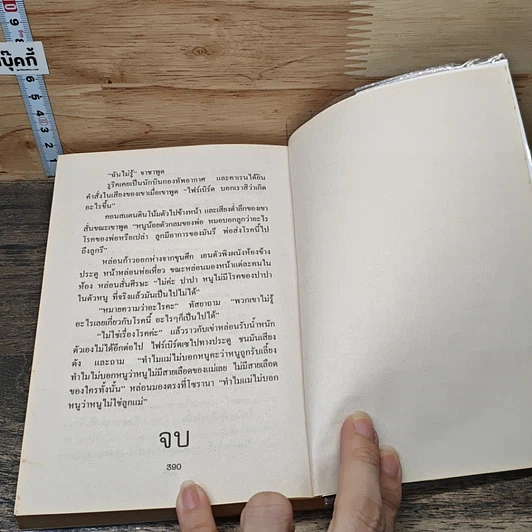 บุ๊คกี้
"ฉันไม่รู้" จาชาพูด
รูริคเคยเป็นนักบินกองทัพอากาศ และคาเรนได้ยิน
คำสั่งในเสียงของเขาเมื่อเขาพูด "ไฟร์เบิร์ด บอกเราสิว่าเกิด
อะไรขึ้น"
คอนสแตนตินโน้มตัวไปข้างหน้า และเสียงต่ำลึกของเขา
สั่นขณะเขาพูด "หนูน้อยตัวกลมของพ่อ หมอบอกลูกว่าอะไร
โรคของพ่อหรือเปล่า ลูกมีอาการของมันรึ พ่อส่งโรคนี้ไป
ถึงลูกรึ"
หล่อนก้าวออกห่างจากขุนศึก เอนตัวพิงผนังห้องข้าง
ประตู หน้าหล่อนห่อเหี่ยว ขณะหล่อนมองหน้าแต่ละคนใน
ห้อง หล่อนสั่นศีรษะ "ไม่ค่ะ ปาปา หนูไม่มีโรคของปาปา
ในตัวหนู ที่จริงแล้วมันเป็นไปไม่ได้"
"หมายความว่าอะไรคะ" ทัสยาถาม "พวกเขาไม่รู้
อะไรเลยเกี่ยวกับโรคนี้ อะไรๆก็เป็นไปได้"
"ไม่ใช่เรื่องโรคค่ะ" แล้วราวกับเข่าหล่อนรับน้ำหนัก
ตัวเองไม่ได้อีกต่อไป ไฟร์เบิร์ดเซไปทางประตู ชนมันเสียง
ดัง และถาม "ทำไมแม่ไม่บอกหนูคะว่าหนูถูกรับเลี้ยง
ทำไมไม่บอกหนูว่าหนูไม่มีสายเลือดของแม่เลย ไม่มีสายเลือด
ของใครทั้งนั้น" หล่อนมองตรงที่โซรานา "ทำไมแม่ไม่บอก
หนูว่าหนูไม่ใช่ลูกแม่"
จบ
390